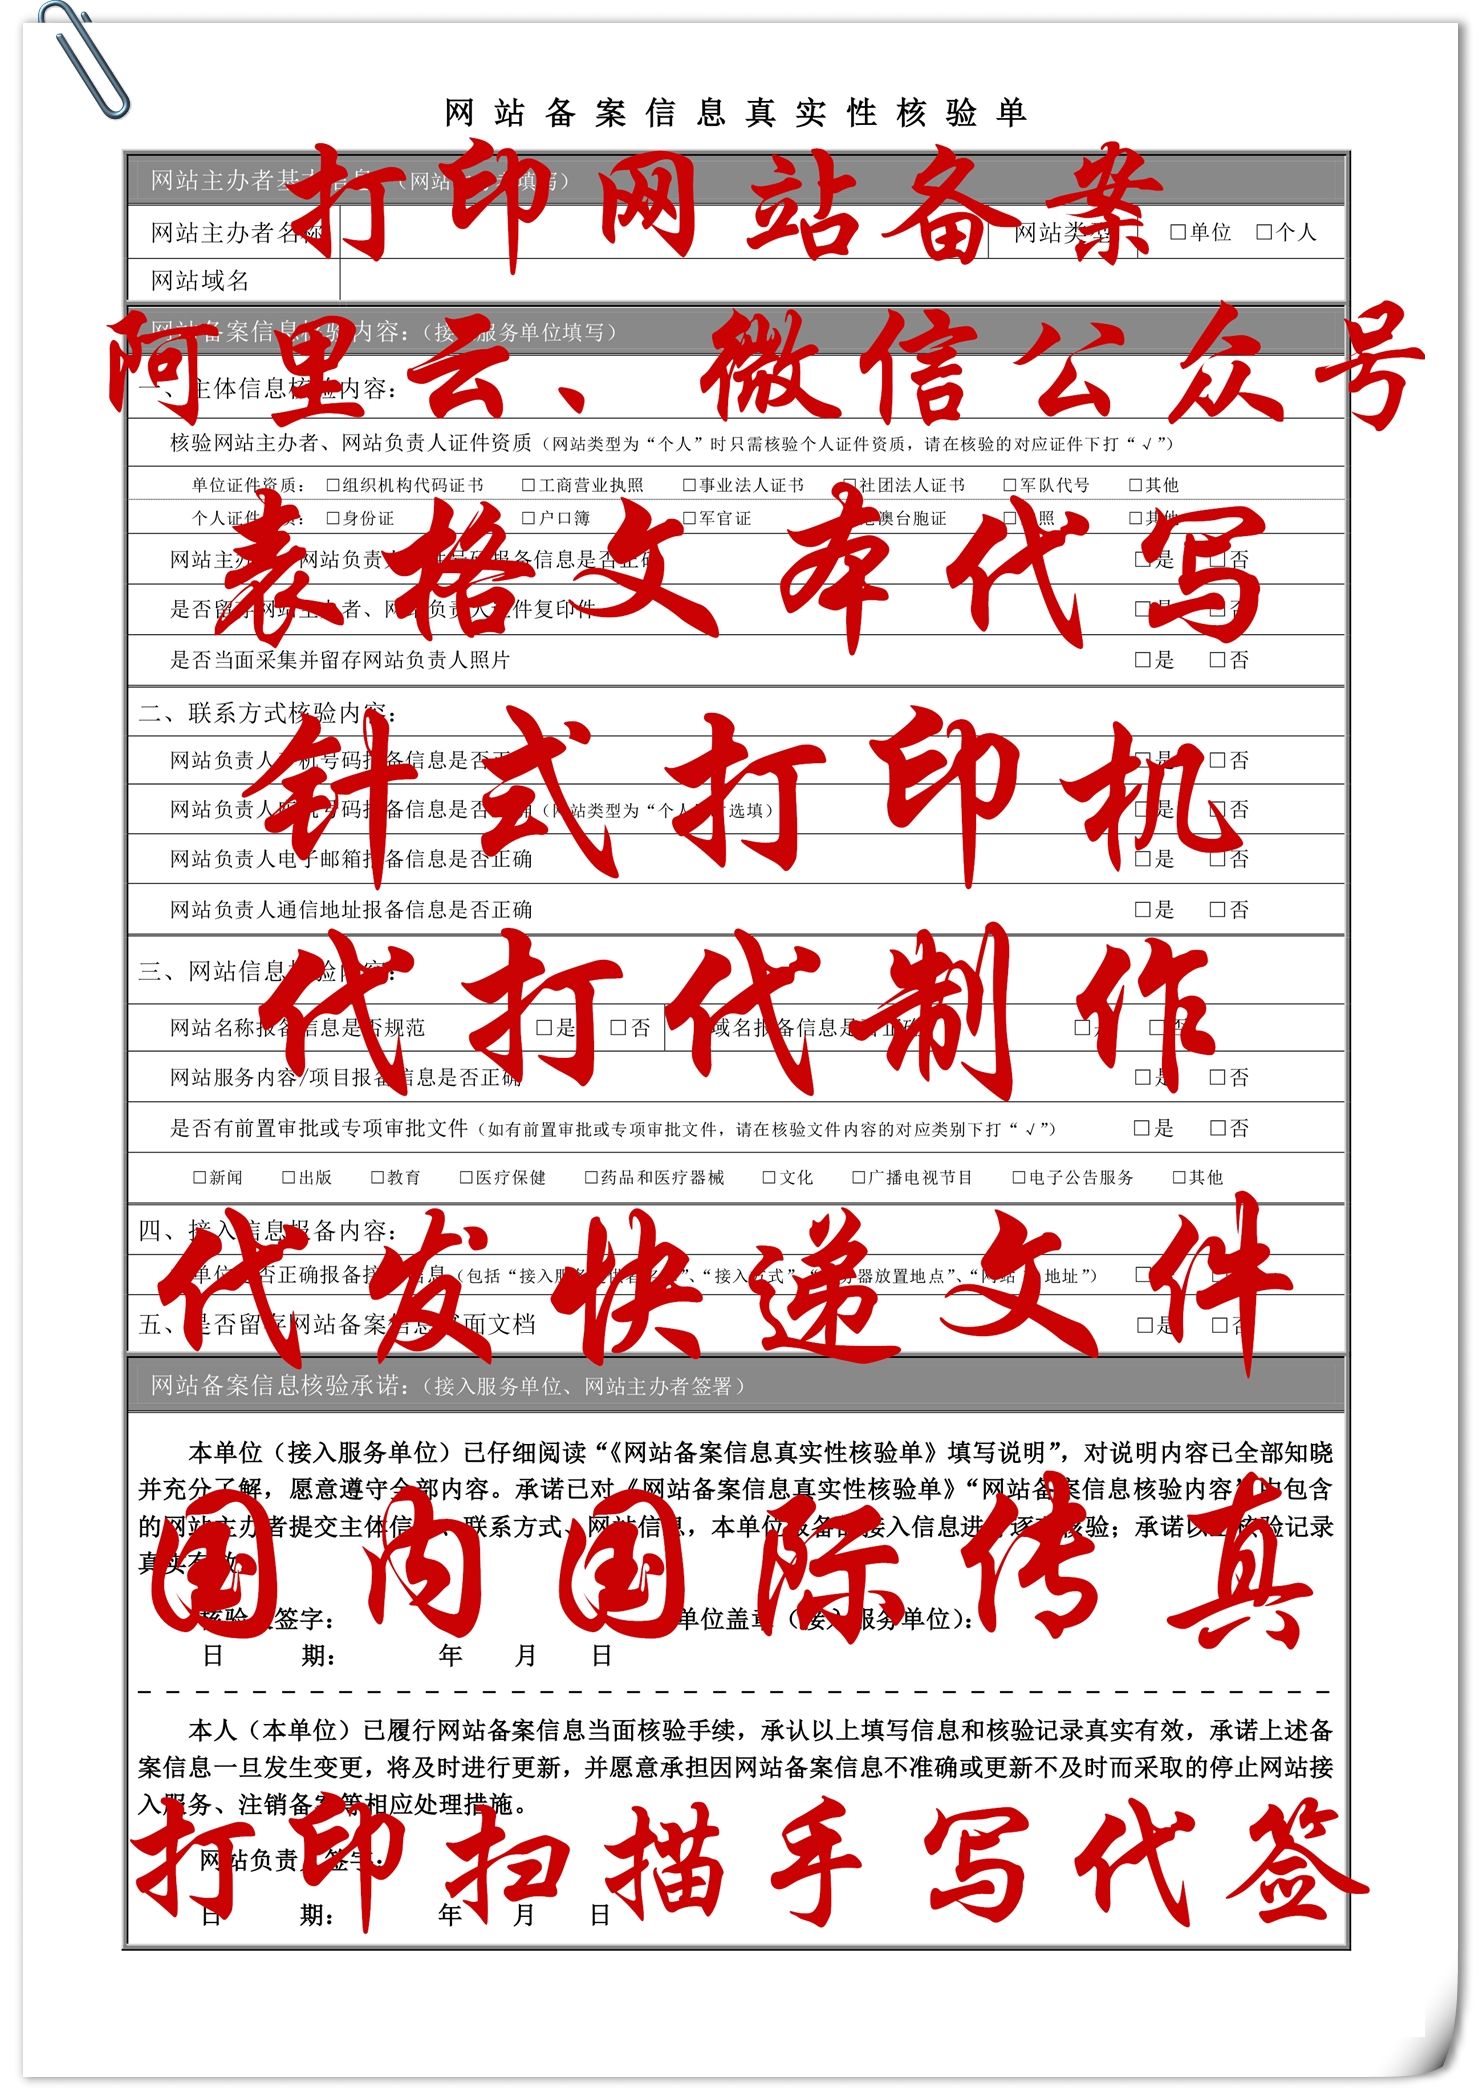 网站备案信息真实性核验单
打印网站备案
网站主办者名称 网站类型 □单位 □个人
网站域名
阿里云、微信公众号
网站备案信息核验内容：（接入服务单位填写）
一、主体信息核验内容：
核验网站主办者、网站负责人证件资质（网站类型为“个人”时只需核验个人证件资质，请在核验的对应证件下打“√”）
单位证件资质： □组织机构代码证书 □工商营业执照 □事业法人证书 □社团法人证书 □军队代号 □其他
个人证件 □身份证 □户口簿 □军官证 澳台胞证 照 □其他
表格文本代写
网站主办 网站负责人 报备信息是否正确 □是 □否
是否留存网站主办者、网站负责人证件复印件 □是 □否
是否当面采集并留存网站负责人照片 □是 □否
二、联系方式核验内容：
针式打印机
网站负责人 机号码报备信息是否正 □是 □否
网站负责人 号码报备信息是否 （网站类型为“个人 选填） □是 □否
网站负责人电子邮箱报备信息是否正确 □是 □否
网站负责人通信地址报备信息是否正确 □是 □否
三、网站信息核验内容：
代打代制作
网站名称报备信息是否规范 □是 □否 域名报备信息是否正确 □是 □否
网站服务内容/项目报备信息是否正确 □是 □否
是否有前置审批或专项审批文件（如有前置审批或专项审批文件，请在核验文件内容的对应类别下打“√”） □是 □否
□新闻 □出版 □教育 □医疗保健 □药品和医疗器械 □文化 □广播电视节目 □电子公告服务 □其他
四、接入信息报备内容：
代发快递文件
单位是否正确报备接 信息（包括“接入服务 ”、“接入方式”、 器放置地点”、“网站 地址”）
五、是否留存网站备案信息 面文档 □是 □否
网站备案信息核验承诺：（接入服务单位、网站主办者签署）
本单位（接入服务单位）已仔细阅读“《网站备案信息真实性核验单》填写说明”，对说明内容已全部知晓
并充分了解，愿意遵守全部内容。承诺已对《网站备案信息真实性核验单》“网站备案信息核验内容”中包含
的网站主办者提交主体信 、联系方式、网站信息，本单位报备的接入信息进行逐 核验；承诺以上核验记录
真实有效
国内国际传真
核验人签字： 单位盖章（接入服务单位）：
日 期： 年 月 日
本人（本单位）已履行网站备案信息当面核验手续，承认以上填写信息和核验记录真实有效，承诺上述备
案信息一旦发生变更，将及时进行更新，并愿意承担因网站备案信息不准确或更新不及时而采取的停止网站接
入服务、注销备案等相应处理措施。
打印扫描手写代签
网站负责人签字：
日 期： 年 月 日